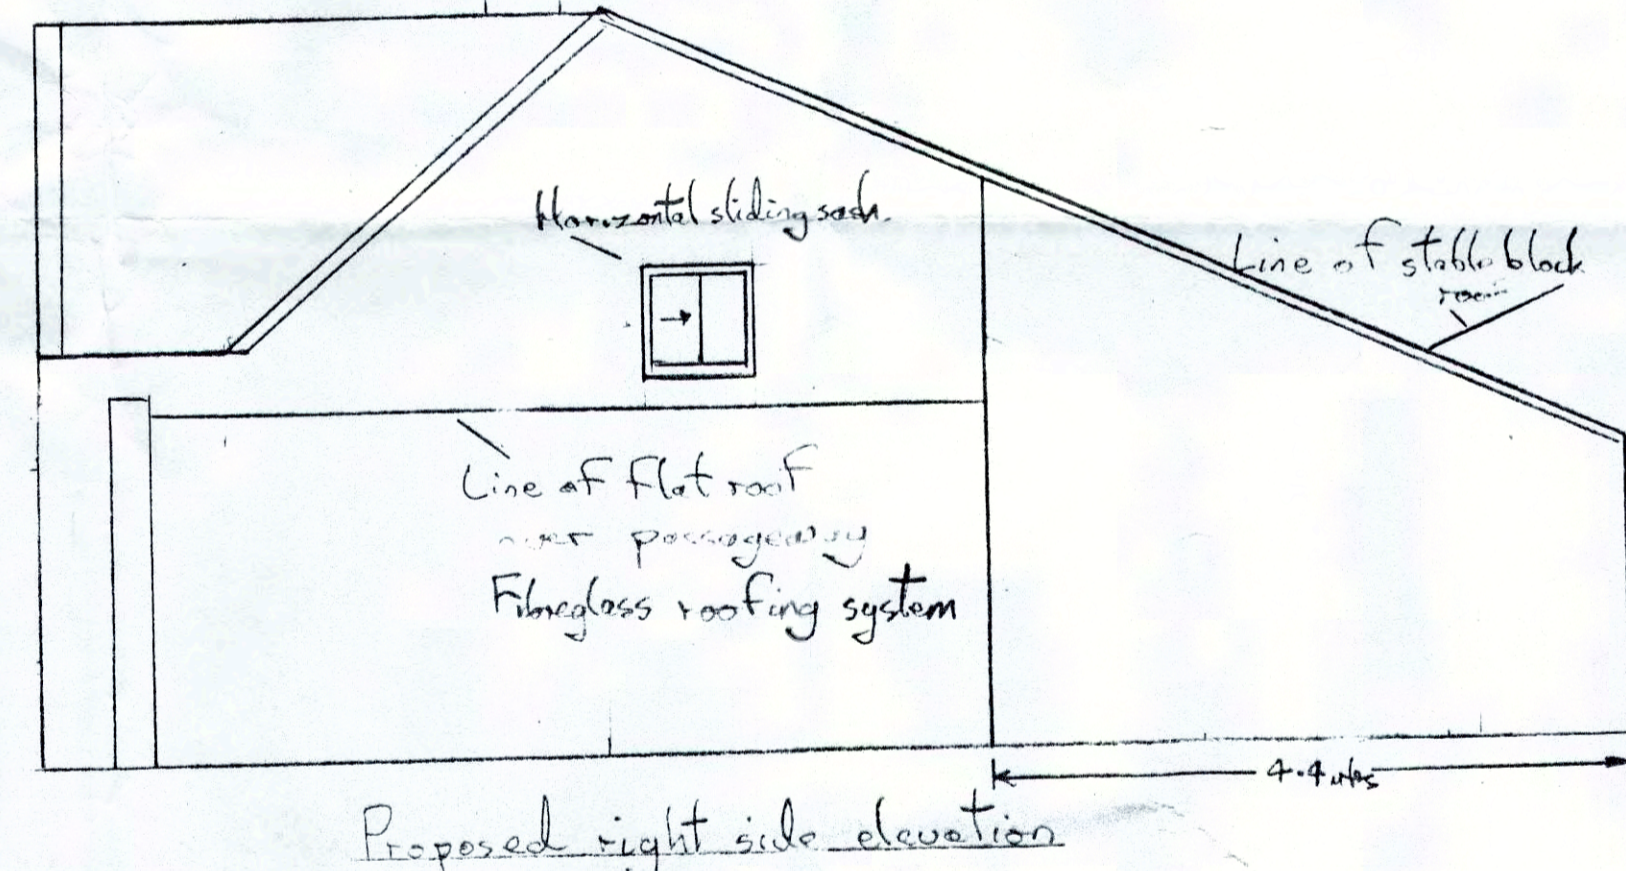 Horizontal sliding sash.
Line of stable block
Line of flat roof
over passageway
Fibreglass roofing system
4.4 mtrs
Proposed right side elevation